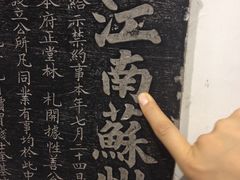 江南蘇州
給示禁約事本年七月二十四日
本府正堂林 札開據性善公
設立公所凡同業有事均於此中